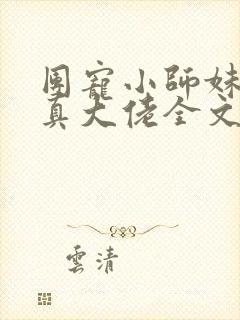 團寵小師妹
真大佬全文
雲清